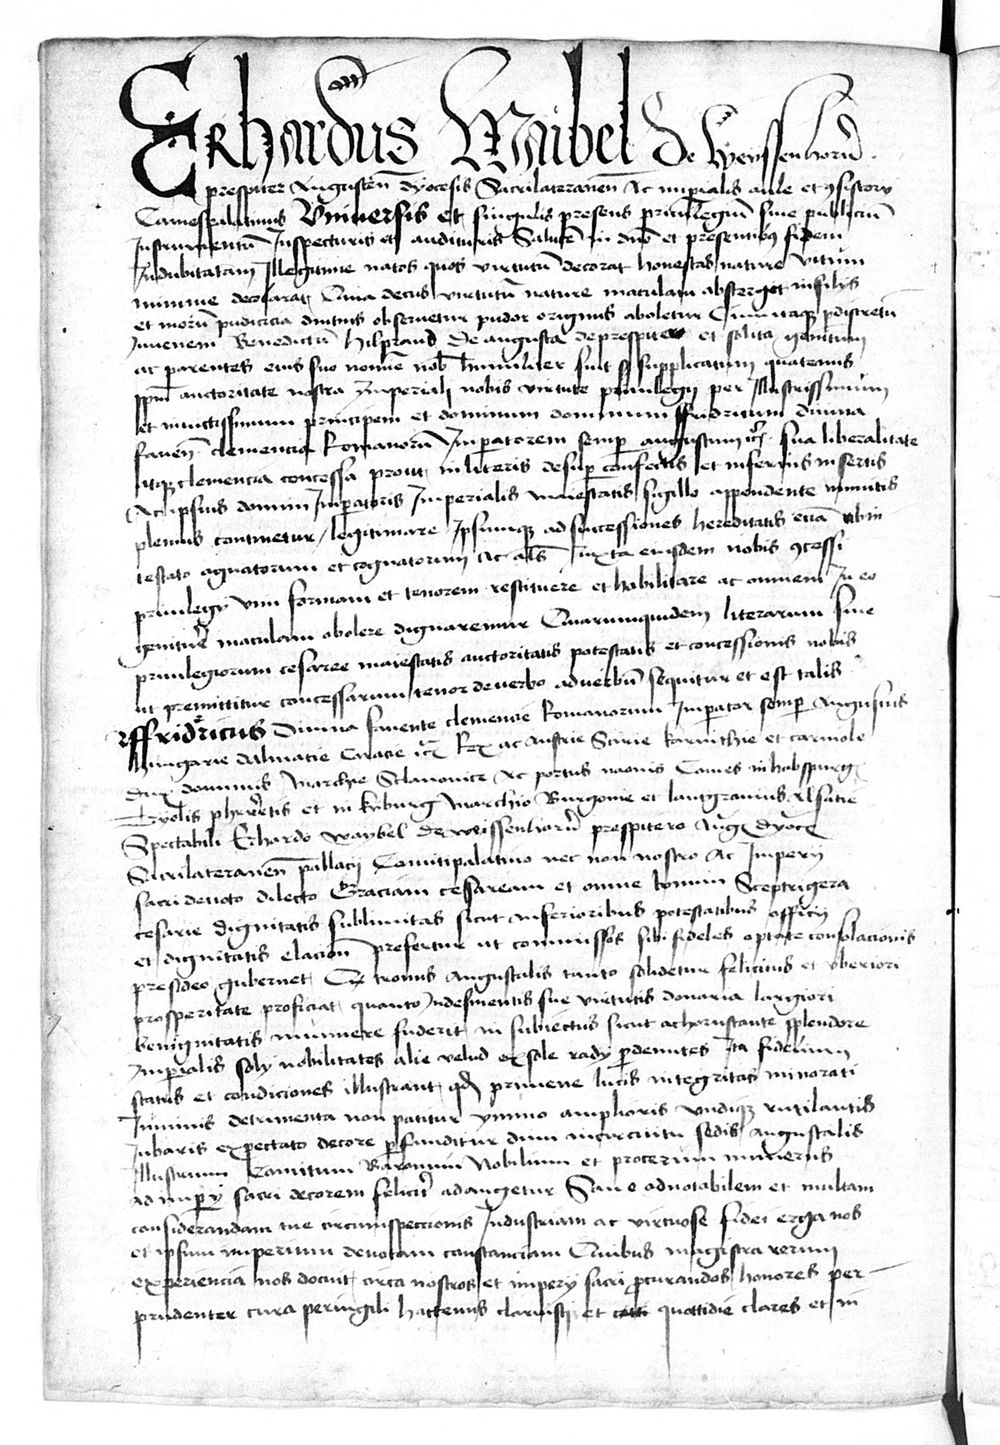 Erhardus Waibel de Weyssenhorn
prespiter Augusten dyocesis Sacrilateranen Ac imperialis aule et consistorii
Comespalatinus Vniuersis et singulis presens priuilegium siue publicum
Instrumentum Inspecturis et audituris Salutem in dno et presentibus fidem
Indubitatam Illegitime natos quos virtutum decorat honestas nature vitium
minime decolorat Quia decus virtutum nature maculam absterget in filiis
et morum pudicicia diutius obseruetur pudor originis aboletur Cum itaque discretum
Juuenem Benedictum Hilprand de augusta de prespitero et soluta genitum
ac parentes eius suo nomine nobis humiliter sint supplicatum quatenus
ipsum auctoritate nostra Imperiali nobis virtute priuilegii per Illustrissimum
et inuictissimum principem et dominum dominum ffridricum diuina
fauen clemencia Romanorum Imperatorem semper augustum etc sua liberalitate
atque clemencia concessa prout in literis desuper confectis et inferius insertis
Ac ipsius domini Imperatoris Imperialis maiestatis sigillo appendente munitis
plenius continetur legitimare Ipsumque ad successiones hereditatis etiam ab in
testato agnatorum et cognatorum ac als Iuxta eiusdem nobis concessi
priuilegii vim formam et tenorem restituere et habilitare ac omnem In eo
geniture maculam abolere dignaremur Quarumquidem literarum siue
priuilegiorum cesaree maiestatis auctoritatis potestatis et concessionis nobis
ut premittitur concessarum tenor de verbo ad verbum sequitur et est talis
ffridricus Diuina fauente clemencie Romanorum Imperator semper Augustus
Hungarie dalmatie Croacie etc Rex ac Austrie Stirie karinthie et carniole
dux dominus Marchie Sclauonice Ac portus naonis Comes in habspurg
Tyrolis phirretis et in kyburg Marchio Burgonie et lantgrauius Alsatie
Spectabili Erhardo Waybel de Weissenhorn prespitero Aug dyoc
Sacrilateranen pallacii Comitipalatino nec non nostro Ac Imperii
sacri deuoto dilecto Graciam cesaream et omne bonum Sceptrigera
cesarie dignitatis sublimitas sicut inferioribus potestatibus officii
et dignitatis elacion prefertur ut commissos sibi fideles optate consolacionis
presideo gubernet Et tronus Augustalis tanto solidetur felicius et vberiori
prosperitate proficiat quanto Indesinentis sue virtutis donaria largiori
benignitatis munere fuderit in subiectus sicut achoruscante splendore
Imperialis solii nobilitates alie velud ex sole radii prodeuntes Ita fidelium
status et condiciones illustrant quod primeue lucis integritas minorati
luminis detrimenta non patitur ymmo amplioris vndique rutilantis
Iubaris expectato decore perfunditur dum in circuitu sedis Augustalis
Illustrium Comitum Baronum Nobilium et procerum numerus
ad imperii sacri decorem feliciter adaugetur Sane adnotabilem et multam
considerandam tue circumspectionis Industriam ac virtuose fidei erga nos
et ipsum imperium deuotam constanciam Quibus magistra rerum
experiencia nos docuit circa nostros et imperii sacri procurandos honores per
prudenter cura peruigili hactenus claruisti et quottidie clares et in